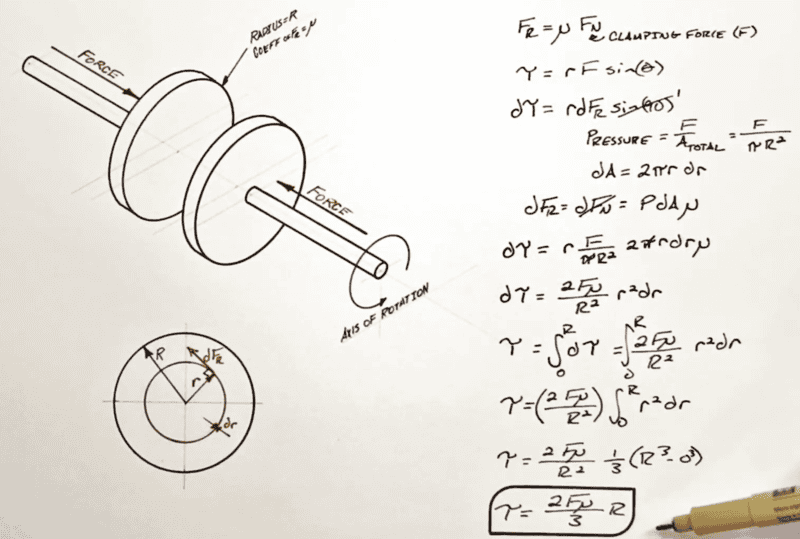 RADIUS=R
COEFF OF FR=μ
FORCE
FORCE
AXIS OF ROTATION
R
dFR
r
dr
FR = μ FN CLAMPING FORCE (F)
τ = rF sin(θ)
dτ = rdFR sin(90)¹
PRESSURE = F/ATOTAL = F/πR²
dA = 2πr dr
dFR = dFN = PdAμ
dτ = r F/πR² 2πrdrμ
dτ = 2Fμ/R² r²dr
τ = ∫₀ᴿ dτ = ∫₀ᴿ 2Fμ/R² r²dr
τ = (2Fμ/R²) ∫₀ᴿ r²dr
τ = 2Fμ/R² 1/3 (R³-0³)
τ = 2Fμ/3 R